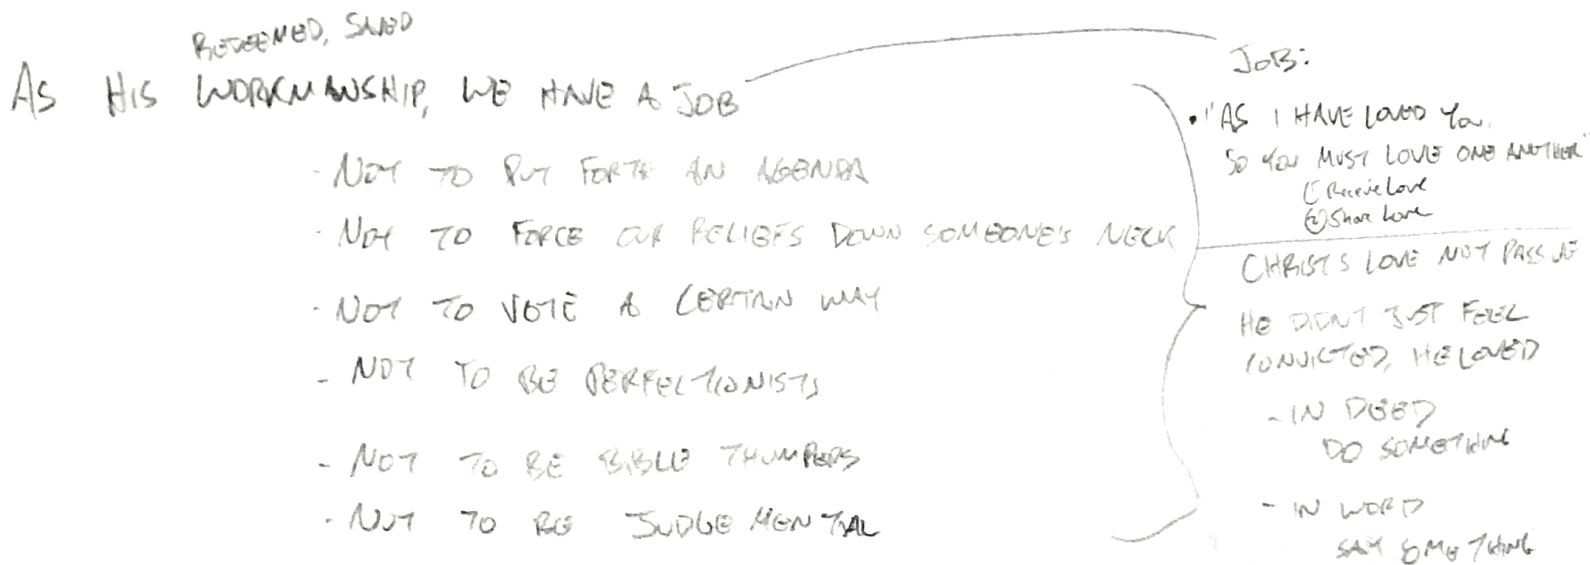 REDEEMED, SAVED
AS HIS WORKMANSHIP, WE HAVE A JOB
- NOT TO PUT FORTH AN AGENDA
- NOT TO FORCE OUR BELIEFS DOWN SOMEONE'S NECK
- NOT TO VOTE A CERTAIN WAY
- NOT TO BE PERFECTIONISTS
- NOT TO BE BIBLE THUMPERS
- NOT TO BE JUDGEMENTAL
JOB:
• "AS I HAVE LOVED YOU,
SO YOU MUST LOVE ONE ANOTHER"
① Receive Love
② Share Love
CHRIST'S LOVE NOT PASSIVE
HE DIDN'T JUST FEEL
CONVICTED, HE LOVED
- IN DEED
DO SOMETHING
- IN WORD
SAY SOMETHING